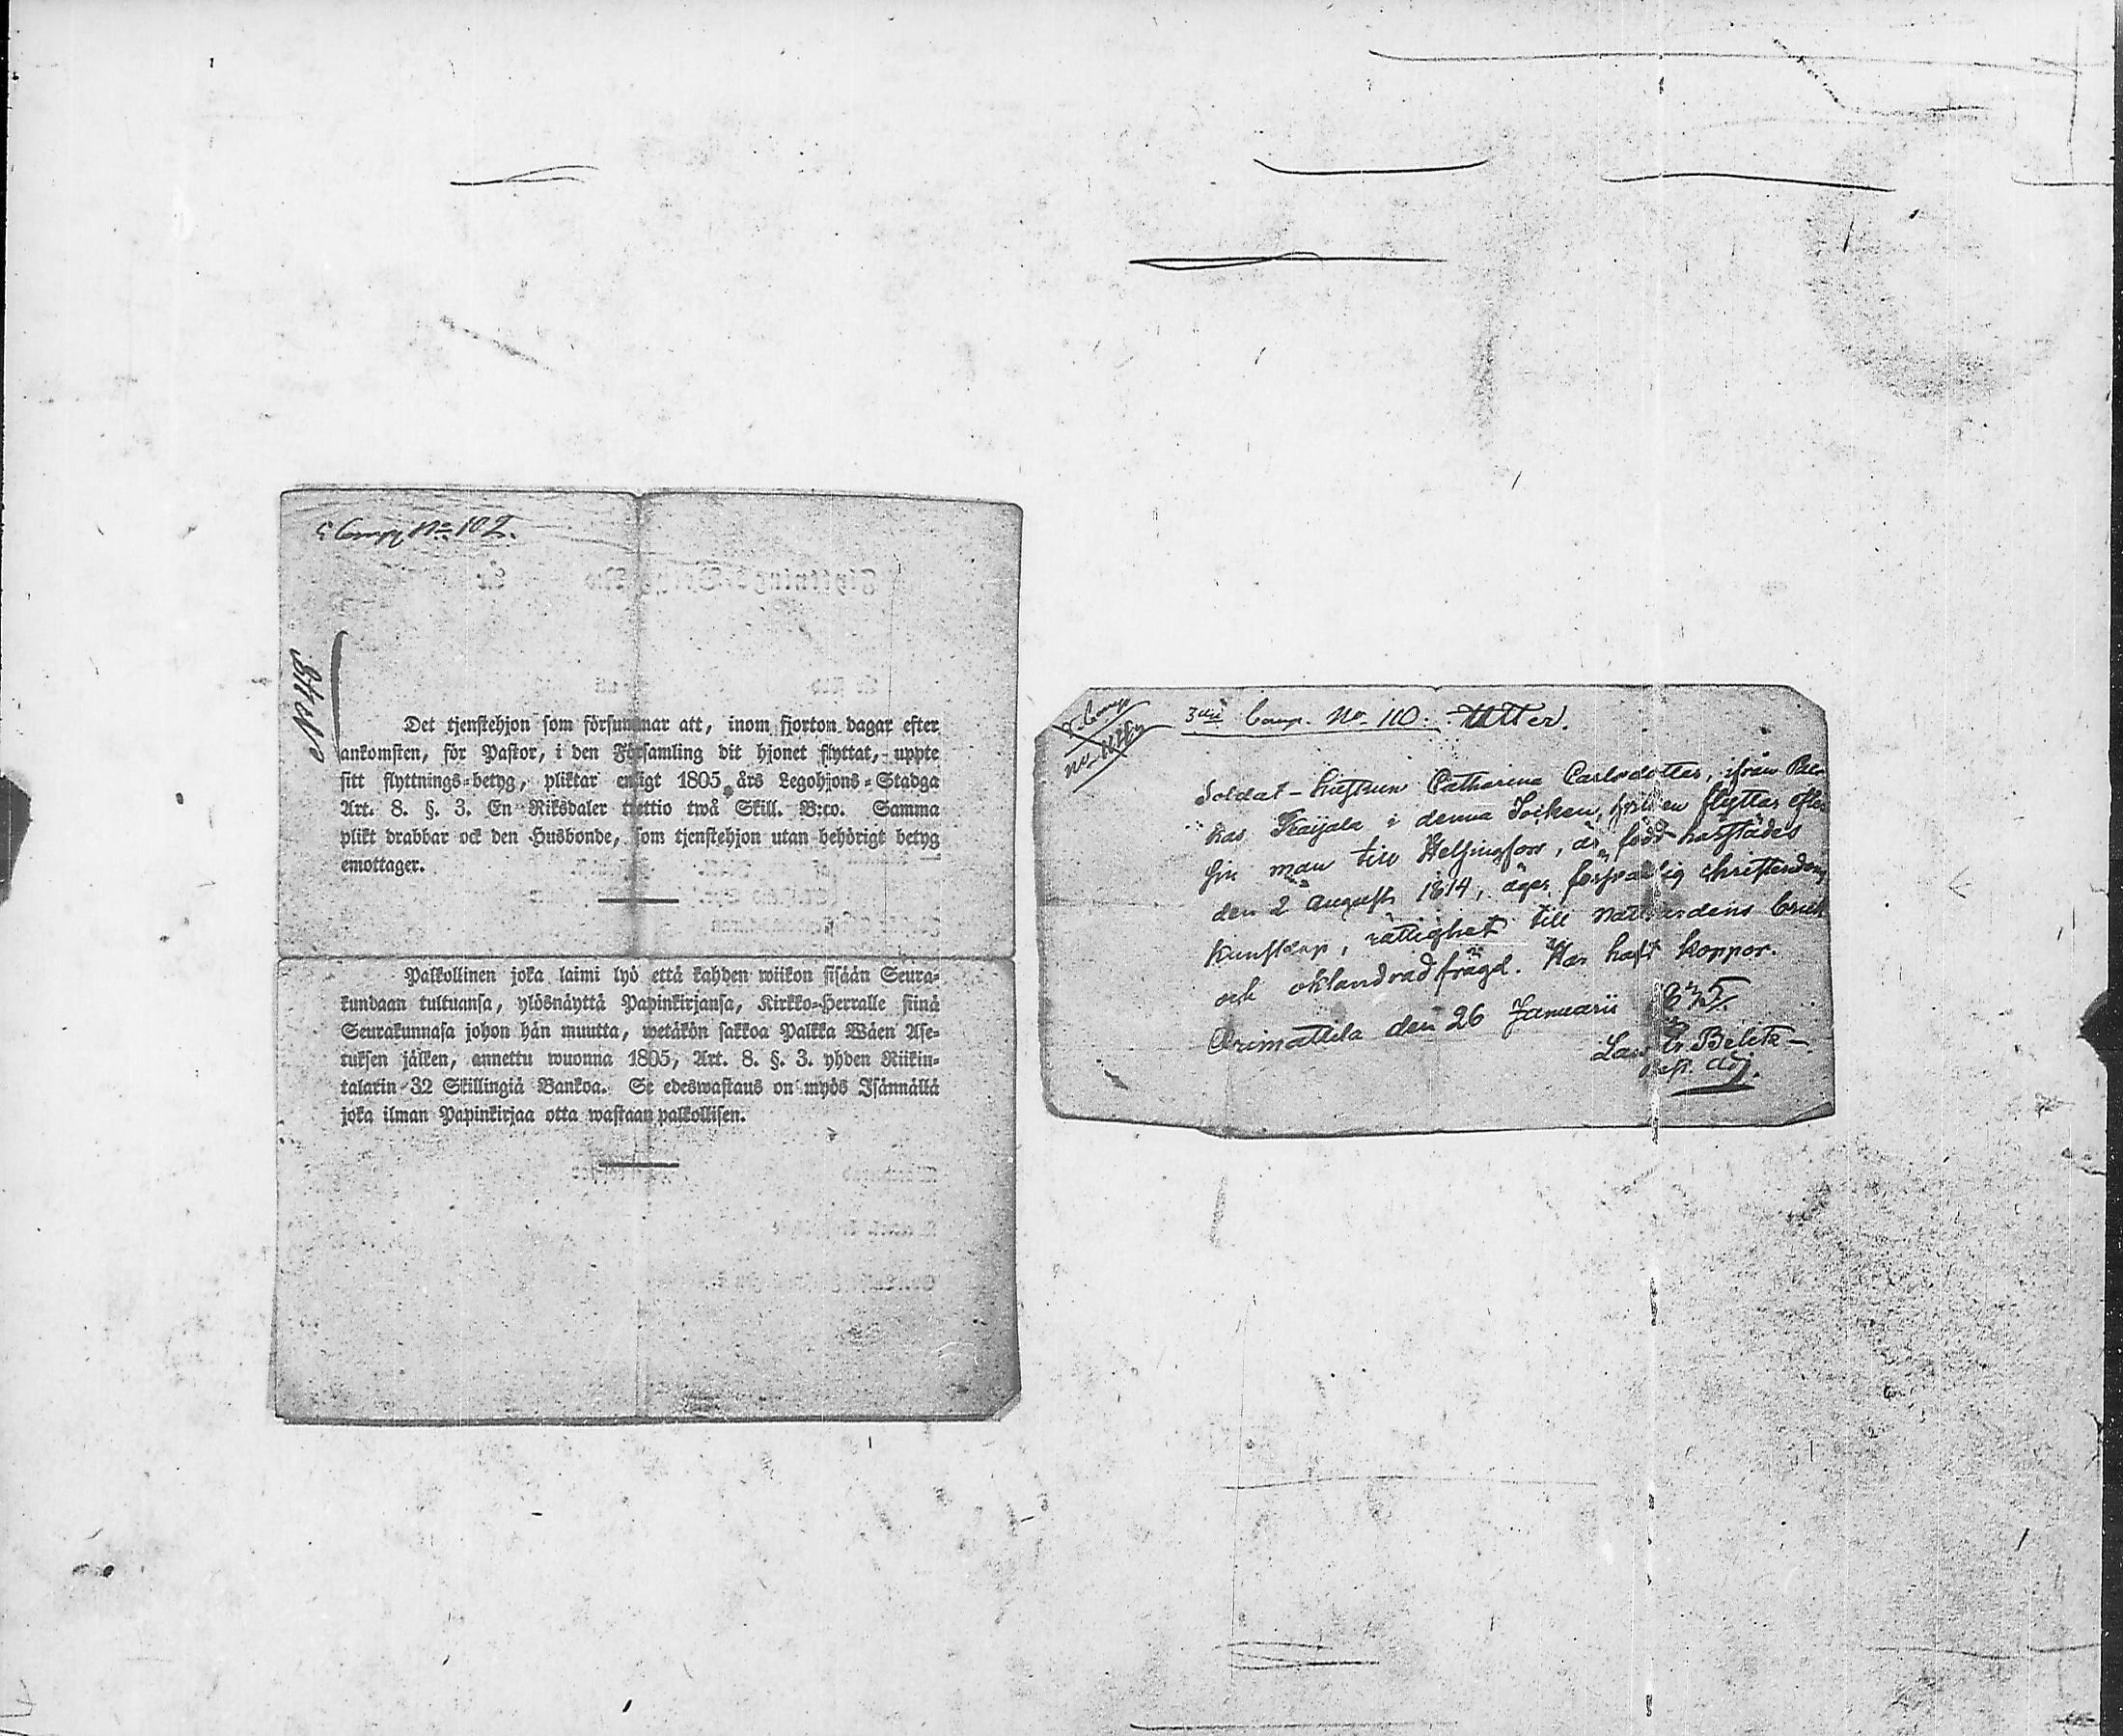 Comp No 102.
No 48
Det tjenstehjon som försummar att, inom fjorton dagar efter
ankomsten, för Pastor, i den Församling dit hjonet flyttat, uppte
sitt flyttnings-betyg, pliktar enligt 1805 års Legohjons-Stadga
Art. 8. §. 3. En Riksdaler trettio twå Skill. B:co. Samma
plikt drabbar ock den Husbonde, som tjenstehjon utan behörigt betyg
emottager.
Palkollinen joka laimi lyö että kahden wiikon sisään Seura-
kundaan tultuansa, ylösnäyttä Papinkirjansa, Kirkko-Herralle siinä
Seurakunnasa johon hän muutta, wetäkön sakkoa Palkka Wäen Ase-
tuksen jälken, annettu wuonna 1805, Art. 8. §. 3. yhden Riikin-
talarin 32 Skillingiä Bankoa. Se edeswastaus on myös Isännällä
joka ilman Papinkirjaa otta wastaan palkollisen.
Comp
3die Comp. No 110. Utter.
Soldat-hustrun Catharina Carlsdotter, ifrån
Kaijala i denna Socken, flyttar efter
sin man till Helsingfors, är född harstädes
den 2 Augusti 1814, äger försvarlig christendoms
kunskap, rättighet till nattvardens bruk
och oklandrad frägd. Har haft koppor.
Orimattila den 26 Januarii
Adj.